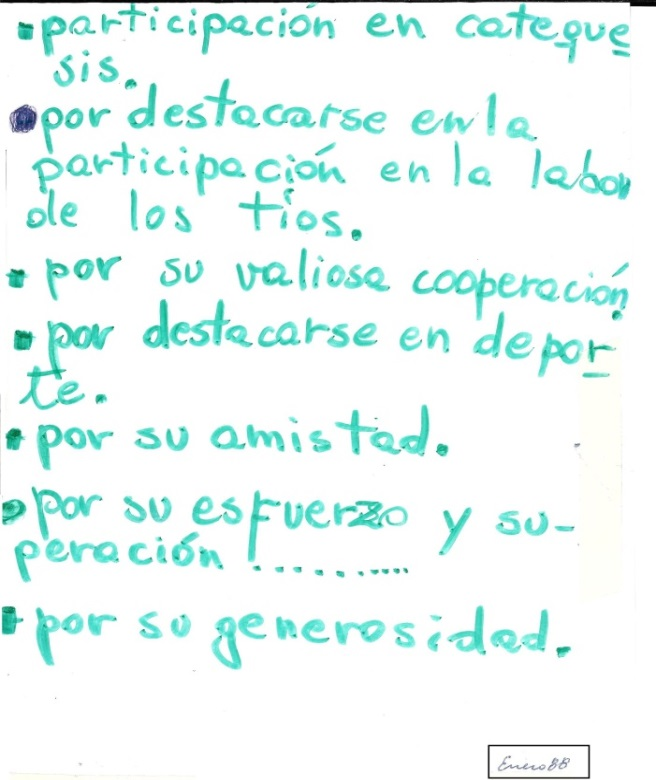 ▪participación en cateque
sis.
●por destacarse en la
participación en la labor
de los tíos.
▪por su valiosa cooperación.
▪por destacarse en depor
te.
▪por su amistad.
●por su esfuerzo y su-
peración ..........
▪por su generosidad.
Enero 88